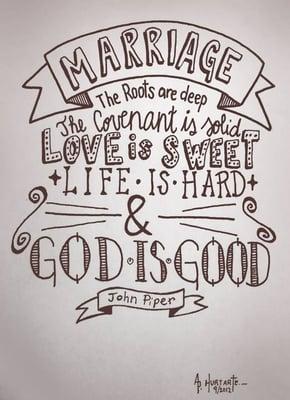 MARRIAGE
The Roots are deep
The Covenant is solid
LOVE is SWEET
LIFE · IS · HARD
&
GOD · IS · GOOD
John Piper
AP. HURTARTE
9/2012